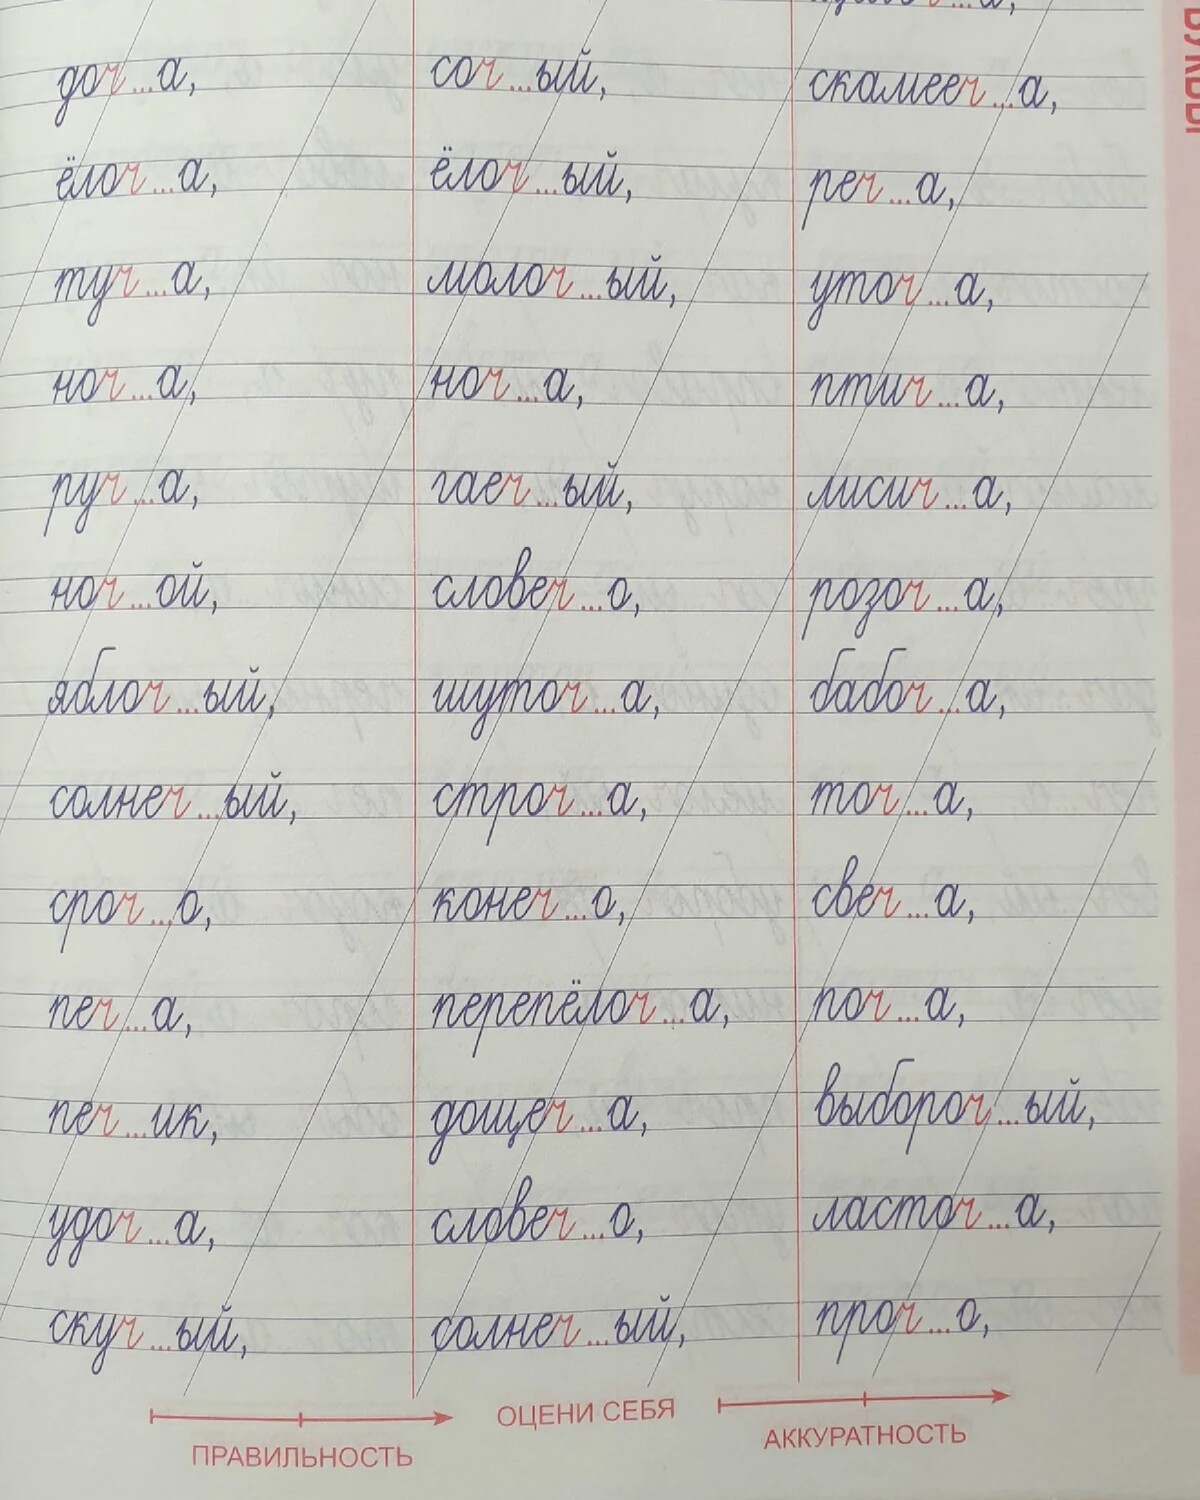 доч...а,
ёлоч...а,
туч...а,
ноч...а,
руч...а,
ноч...ой,
яблоч...ый,
солнеч...ый,
сроч...о,
печ...а,
печ...ик,
удоч...а,
скуч...ый,
соч...ый,
ёлоч...ый,
молоч...ый,
ноч...а,
гаеч...ый,
словеч...о,
шуточ...а,
строч...а,
конеч...о,
перепёлоч...а,
дощеч...а,
словеч...о,
солнеч...ый,
скамееч...а,
реч...а,
уточ...а,
птич...а,
лисич...а,
розоч...а,
бабоч...а,
точ...а,
свеч...а,
поч...а,
выбороч...ый,
ласточ...а,
проч...о,
БУКВЫ
ОЦЕНИ СЕБЯ
ПРАВИЛЬНОСТЬ
АККУРАТНОСТЬ